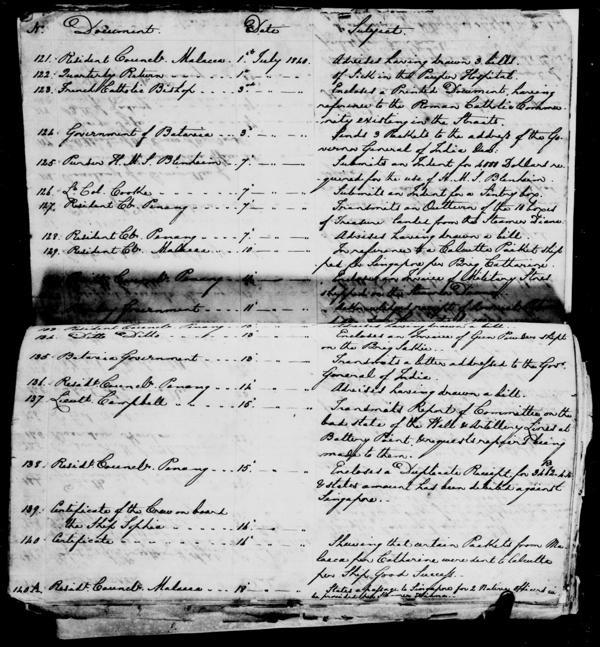 No. Document. Date Subject.
121. Resident Councr. Malacca. 1st July 1840. Advises having drawn 3 bills.
122. Quarterly Return 1st Of Sick in the Pauper Hospital.
123. French Catholic Bishop 3rd Encloses a Printed Document, having
reference to the Roman Catholic Commu-
nity existing in the Straits.
124. Government of Batavia 3 Sends 3 Packets to the address of the Go-
vernor General of India
125. Purser H.M.S. Blenheim 7 Submits an Indent for 4000 Dollars re-
quired for the use of H.M.S. Blenheim
126. Lt. Col. Cooke 7 Submits an Indent for a Sentry box.
127. Resident Cr. Penang 7 Transmits an Outturn of the 10 boxes
of Treasure landed from the Steamer Diana
128. Resident Cr. Penang 7 Advises having drawn a bill.
129. Resident Cr. Malacca 10 In reference to a Calcutta Packet ship
ped for Singapore per Brig Catharine
Penang Invoice of Military Stores
shipped on the
Government 11
Resident Councr. Penang Advises having drawn a bill.
134. Ditto Ditto 13 Encloses an Invoice of Gun Powder shipt
on the Brig
135. Batavia Government 13 Transmits a letter addressed to the Govr.
General of India.
136. Residt. Councr. Penang 14 Advises having drawn a bill.
137. Lieutt. Campbell 15 Transmits Report of Committee on the
bad state of the Well & Artillery Lines at
Battery Point, & requests repairs being
made to them.
138. Residt. Councr. Penang 15 Encloses a Duplicate Receipt for
& states amount has been debited against
Singapore.
139. Certificate of the Crew on board
the Ship Sophia 16
140. Certificate 16 Shewing that certain Packets from Ma-
lacca per Catharine were sent to Calcutta
per Ship Good Success.
140A. Residt. Councr. Malacca 18 States a passage to Singapore for 2 Native Officers
be provided